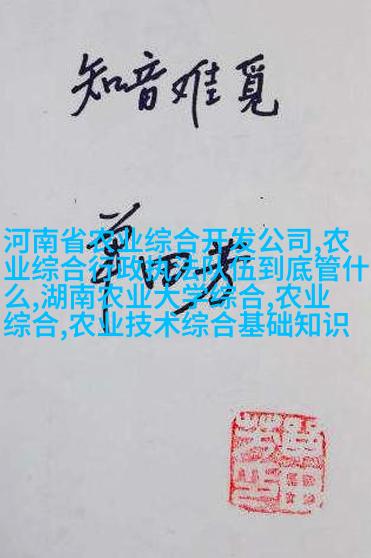 知音难觅
单田芳
河南省农业综合开发公司,农
业综合行政执法队伍到底管什
么,湖南农业大学综合,农业
综合,农业技术综合基础知识